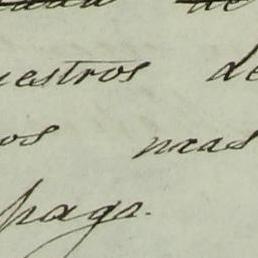 uestros de
os mas
paga.